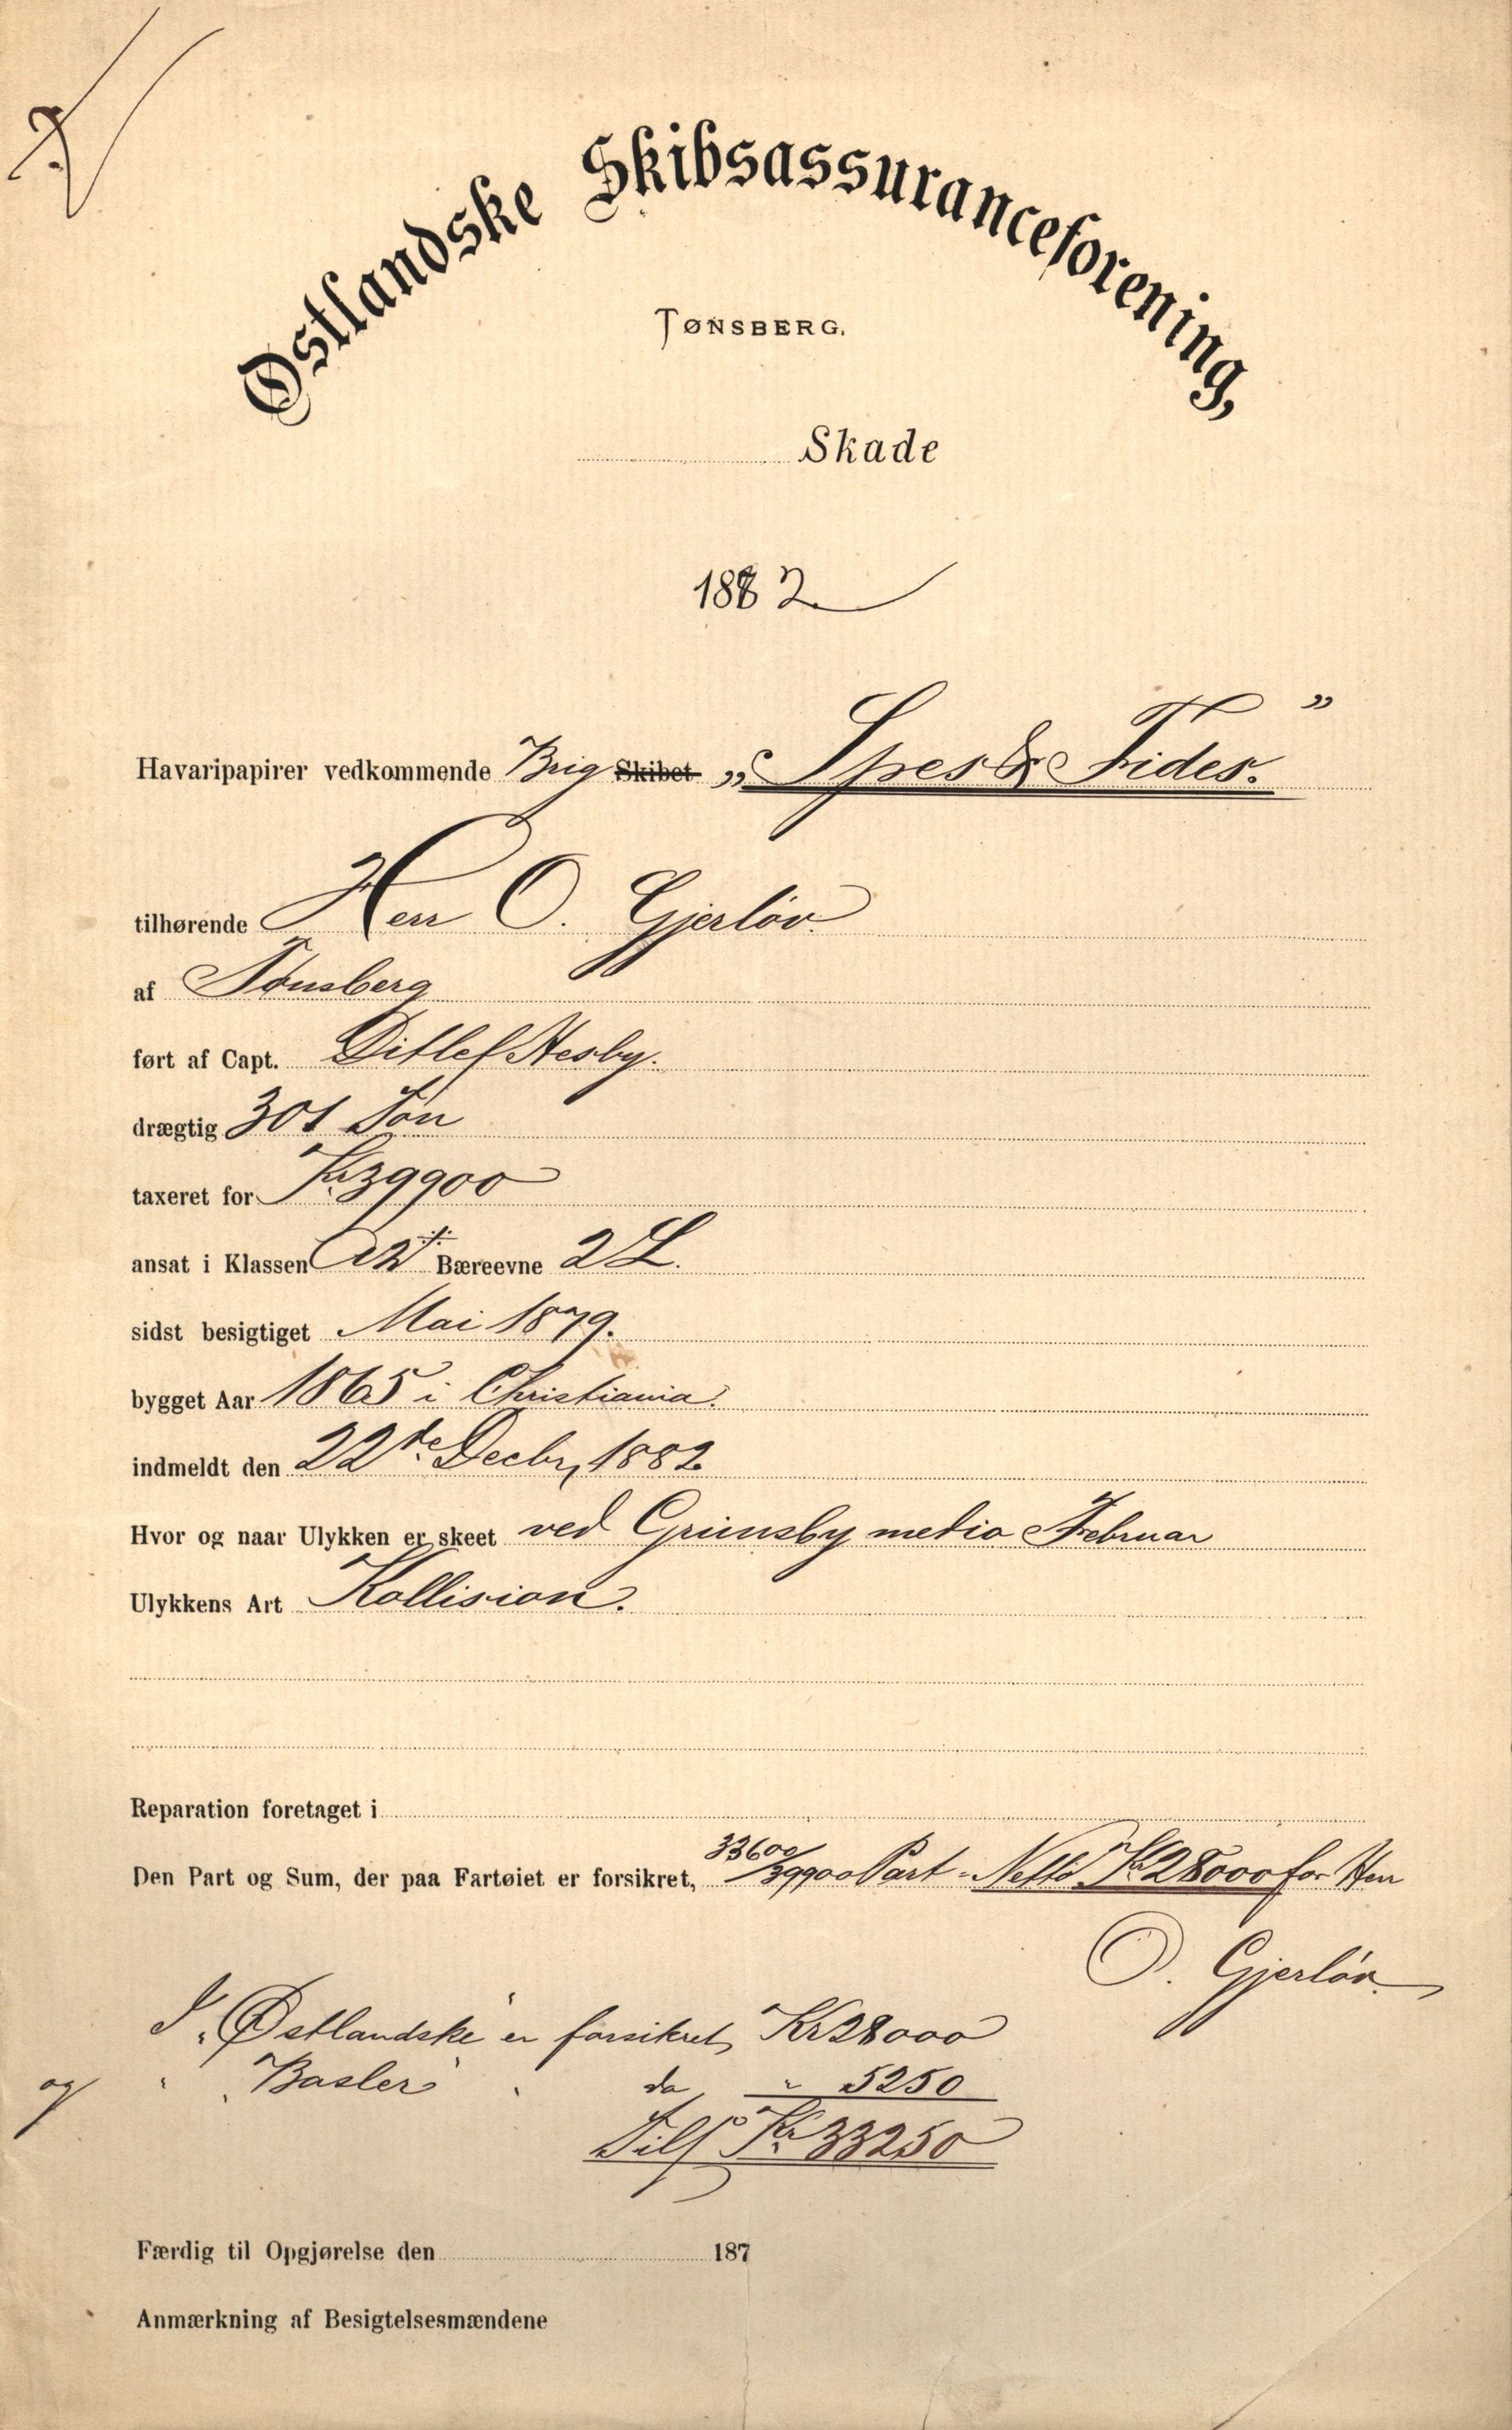 Østlandske Skibsassuranceforening,
TØNSBERG.
Skade
1882
Havaripapirer vedkommende Brig Skibet „Spes & Fides."
tilhørende Herr O. Gjerløv.
af Tønsberg
ført af Capt. Ditlef Hesby.
drægtig 301 Ton
taxeret for Kr 39900
ansat i Klassen Bæreevne 2 L.
sidst besigtiget Mai 1879.
bygget Aar 1865 i Christiania.
indmeldt den 22de Decbr, 1882
Hvor og naar Ulykken er skeet ved Grimsby medio Februar
Ulykkens Art Kollision.
Reparation foretaget i
Den Part og Sum, der paa Fartøiet er forsikret, 33600/39900 Part - Netto Kr 28000 for Herr
O. Gjerløv.
I „Østlandske" er forsikret, Kr 28000
og " „Basler" " do " 5250
Tils Kr 33250
Færdig til Opgjørelse den 187
Anmærkning af Besigtelsesmændene